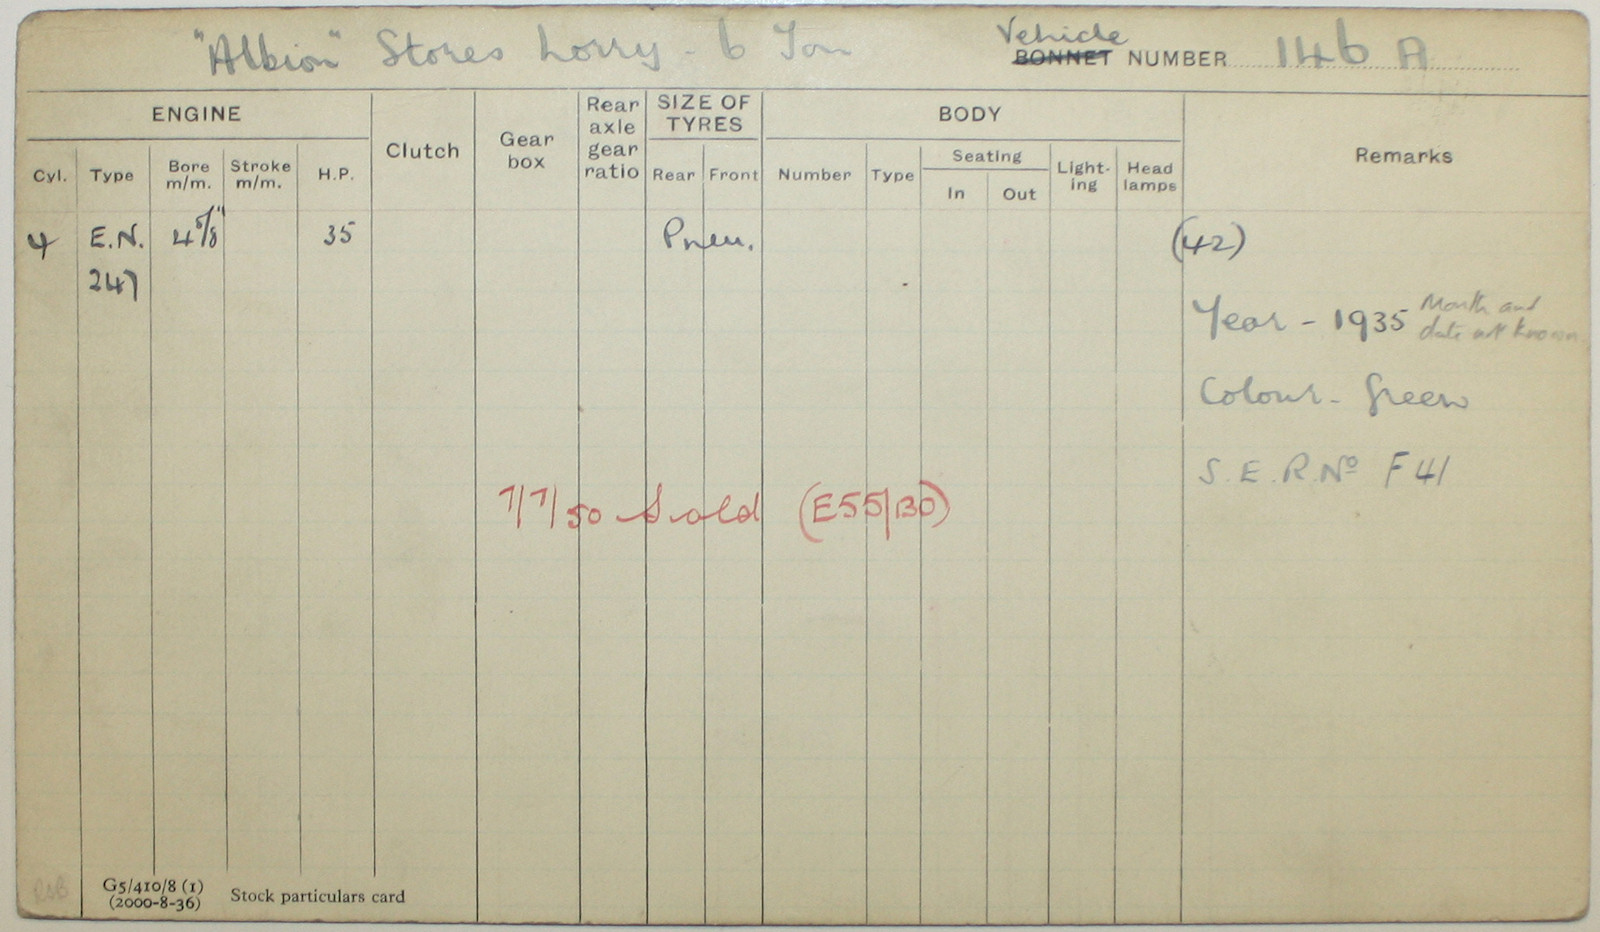 "Albion" Stores Lorry - 6 Ton
Vehicle
BONNET NUMBER 146 A
ENGINE
Clutch
Gear box
Rear axle gear ratio
SIZE OF TYRES
BODY
Remarks
Cyl. Type Bore m/m. Stroke m/m. H.P.
Rear Front
Number Type
Seating
In Out
Light-ing
Head lamps
4 E.N. 4 5/8" 35 Pneu. (42)
247
Year - 1935 Month and
date not known
Colour - Green
S.E.R. Nº F 41
7/7/50 Sold (E55/130)
G5/410/8 (1)
(2000-8-36)
Stock particulars card